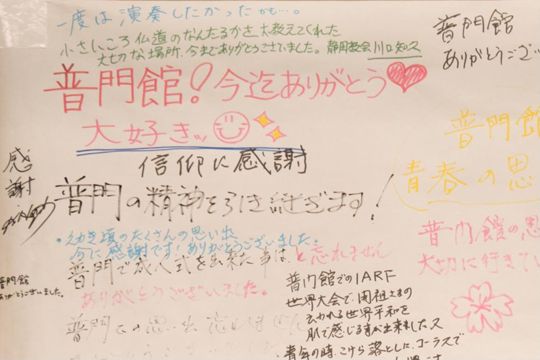 一度は演奏したかったかも…。
小さいころ仏道のなんたるかを教えてくれた
大切な場所、今までありがとうございました。静岡教会
普門館
ありがとうござい
普門館!今迄ありがとう
大好きッ
普門館
信仰に感謝
感謝
青春の思
普門の精神を引き継ぎます!
幼き頃のたくさんの思い出
今に感謝です!ありがとうございました。
普門館の思
普門で成人式を出来た事は
忘れません
大切に行きてい
普門館
ありがとうございました。
ありがとうございました。
普門館でのIARF
世界大会で、開祖さまの
云われる世界平和を
肌で感じる事が出来ました。又
青年の時、こけら落とし、コーラスで
普門
思い出